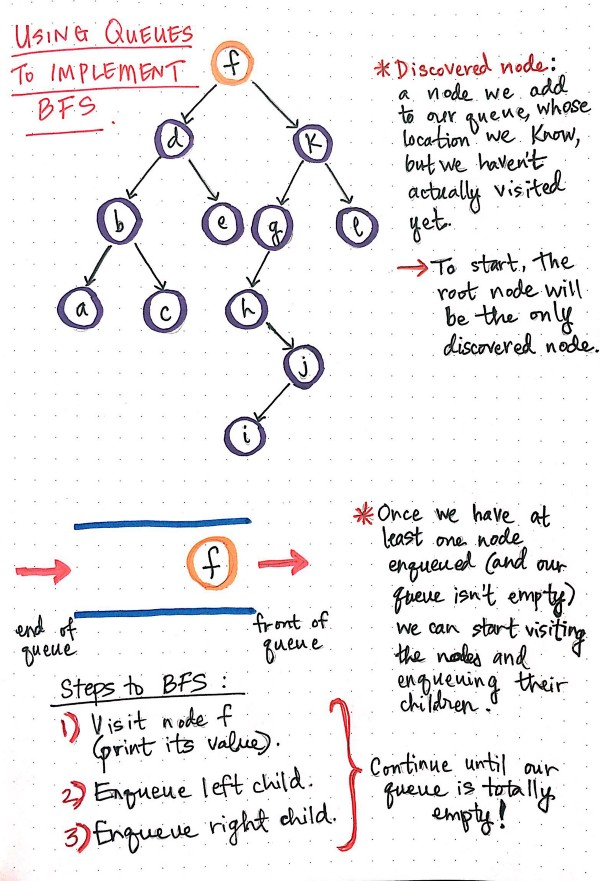 USING QUEUES
TO IMPLEMENT
BFS.
f
d
k
b
e
g
l
a
c
h
j
i
* Discovered node:
a node we add
to our queue, whose
location we know,
but we haven't
actually visited
yet.
→ To start, the
root node will
be the only
discovered node.
f
end of
queue
front of
queue
* Once we have at
least one node
enqueued (and our
queue isn't empty)
we can start visiting
the nodes and
enqueuing their
children.
Steps to BFS:
1) Visit node f
(print its value).
2) Enqueue left child.
3) Enqueue right child.
Continue until our
queue is totally
empty!